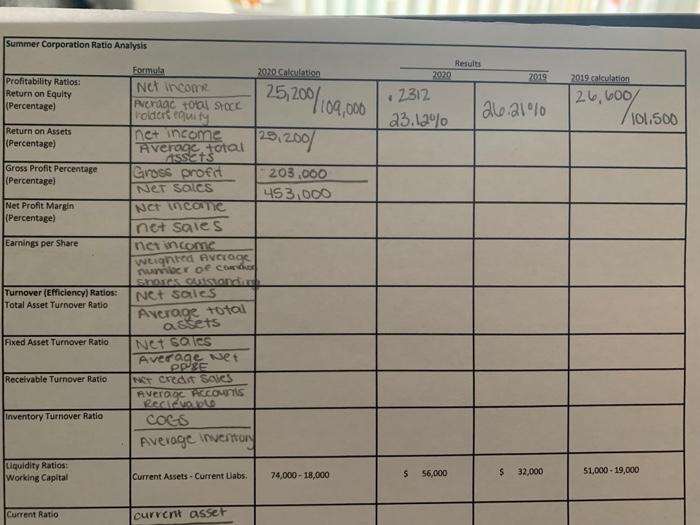 Summer Corporation Ratio Analysis
Results
Formula 2020 Calculation 2020 2019 2019 calculation
Profitability Ratios:
Return on Equity
(Percentage)
Net income
Average total stock
holders equity
25,200/109,000
.2312
23.12%
26.21%
26,600/
101,500
Return on Assets
(Percentage)
net income
Average total
Assets
25,200/
Gross Profit Percentage
(Percentage)
Gross profit
Net sales
203,000
453,000
Net Profit Margin
(Percentage)
Net income
net sales
Earnings per Share
net income
weighted Average
number of
shares outstanding
Turnover (Efficiency) Ratios:
Total Asset Turnover Ratio
Net sales
Average total
assets
Fixed Asset Turnover Ratio
Net sales
Average Net
PP&E
Receivable Turnover Ratio
Net credit sales
Average Accounts
Recievable
Inventory Turnover Ratio
COGS
Average inventory
Liquidity Ratios:
Working Capital
Current Assets - Current Liabs.
74,000 - 18,000
$ 56,000
$ 32,000
51,000 - 19,000
Current Ratio
current asset